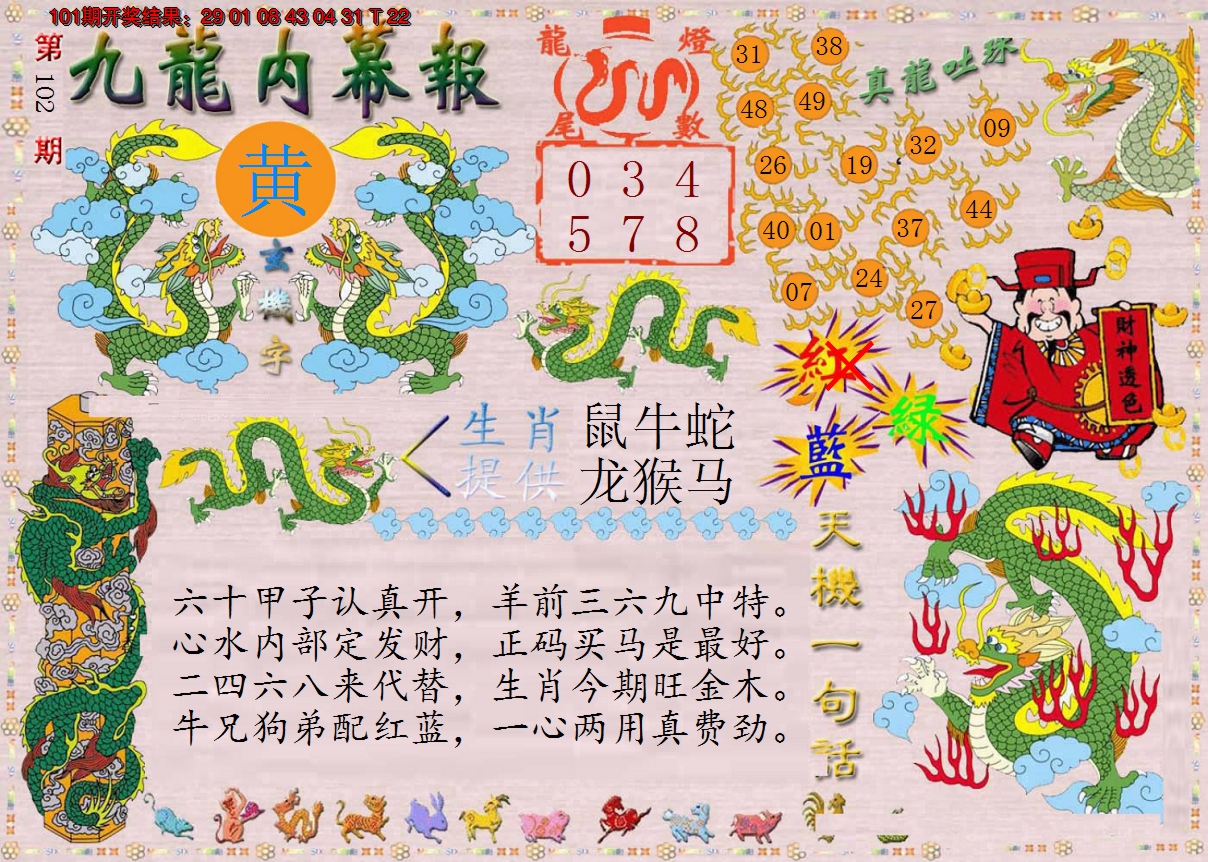 101期开奖结果：29 01 06 43 04 31 T 22
第102期
九龍内幕報
黄
玄機字
龍燈
尾數
0 3 4
5 7 8
真龍吐珠
31 38
48 49
26 19 32 09
40 01 37 44
07 24 27
紅
綠
藍
財神透色
生肖 鼠牛蛇
提供 龙猴马
六十甲子认真开，羊前三六九中特。
心水内部定发财，正码买马是最好。
二四六八来代替，生肖今期旺金木。
牛兄狗弟配红蓝，一心两用真费劲。
天機一句話